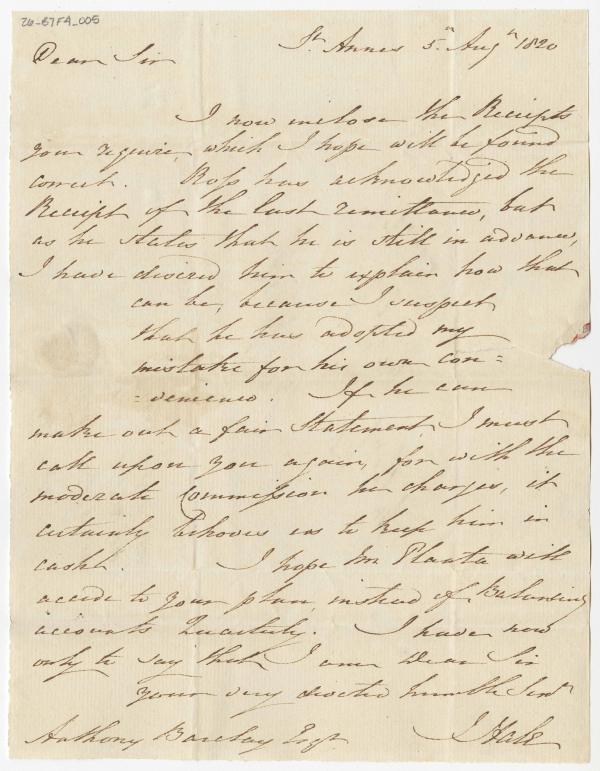 26-87F4_005
St Annes 5th Augt 1820
Dear Sir
I now inclose the Receipts
you require, which I hope will be found
correct. Ross has acknowledged the
Receipt of the last remittance, but
as he states that he is still in advance,
I have desired him to explain how that
can be, because I suspect
that he has adopted my
mistake for his own con=
=venience. If he can
make out a fair Statement I must
call upon you again, for with the
moderate Commission he charges, it
certainly behoves us to keep him in
cash. I hope Mr Planta will
accede to your plan, instead of Balancing
accounts Quarterly. I have now
only to say that I am Dear Sir
your very devoted humble Servt
J Hale
Anthony Barclay Esqr